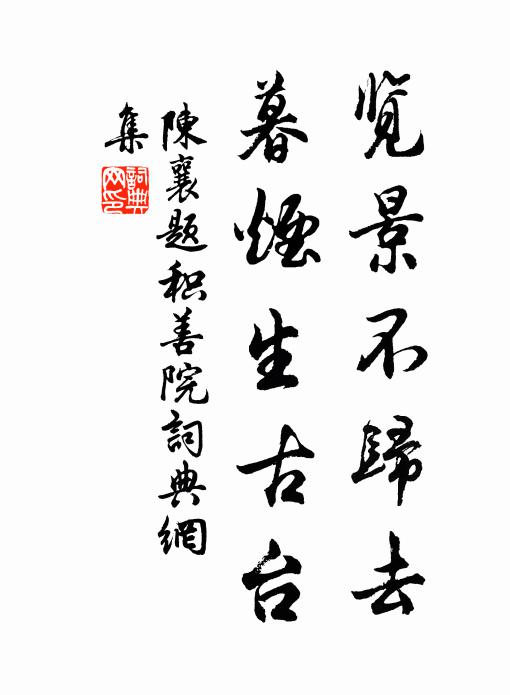 览景不歸去
暮煙生古台
陳襄题积善院詞典網
集
詞典网印